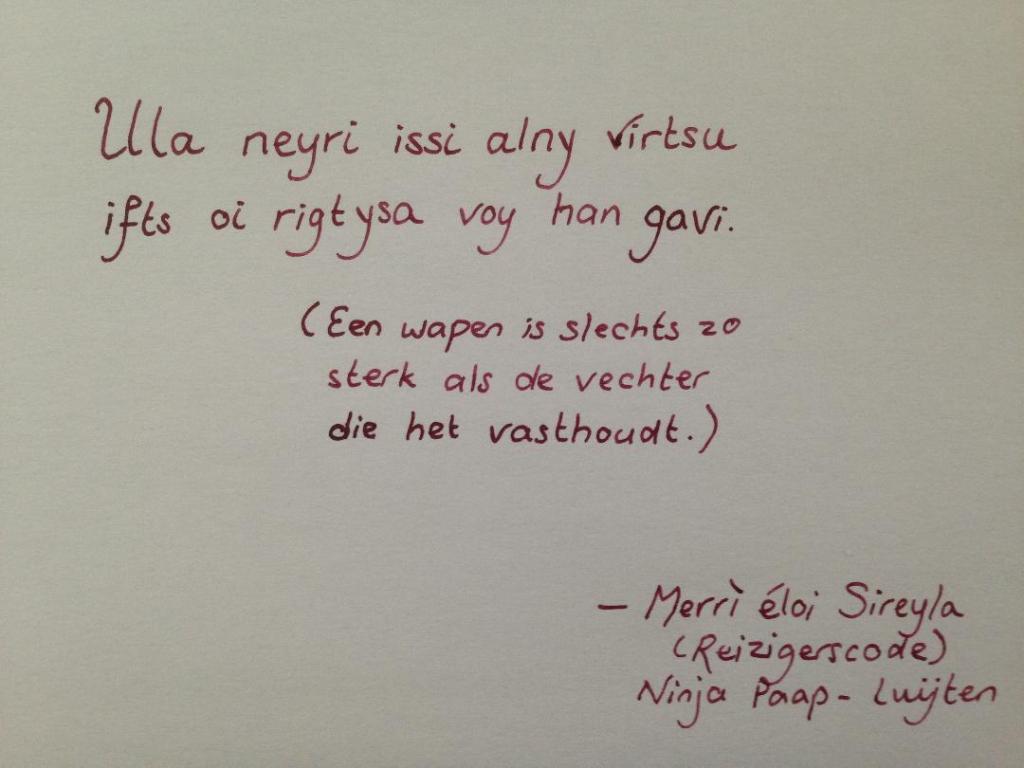 Ulla neyri issi alny virtsu
ifts oi rigtysa voy han gavi.
(Een wapen is slechts zo
sterk als de vechter
die het vasthoudt.)
— Merrì éloi Sireyla
(Reizigerscode)
Ninja Paap-Luijten